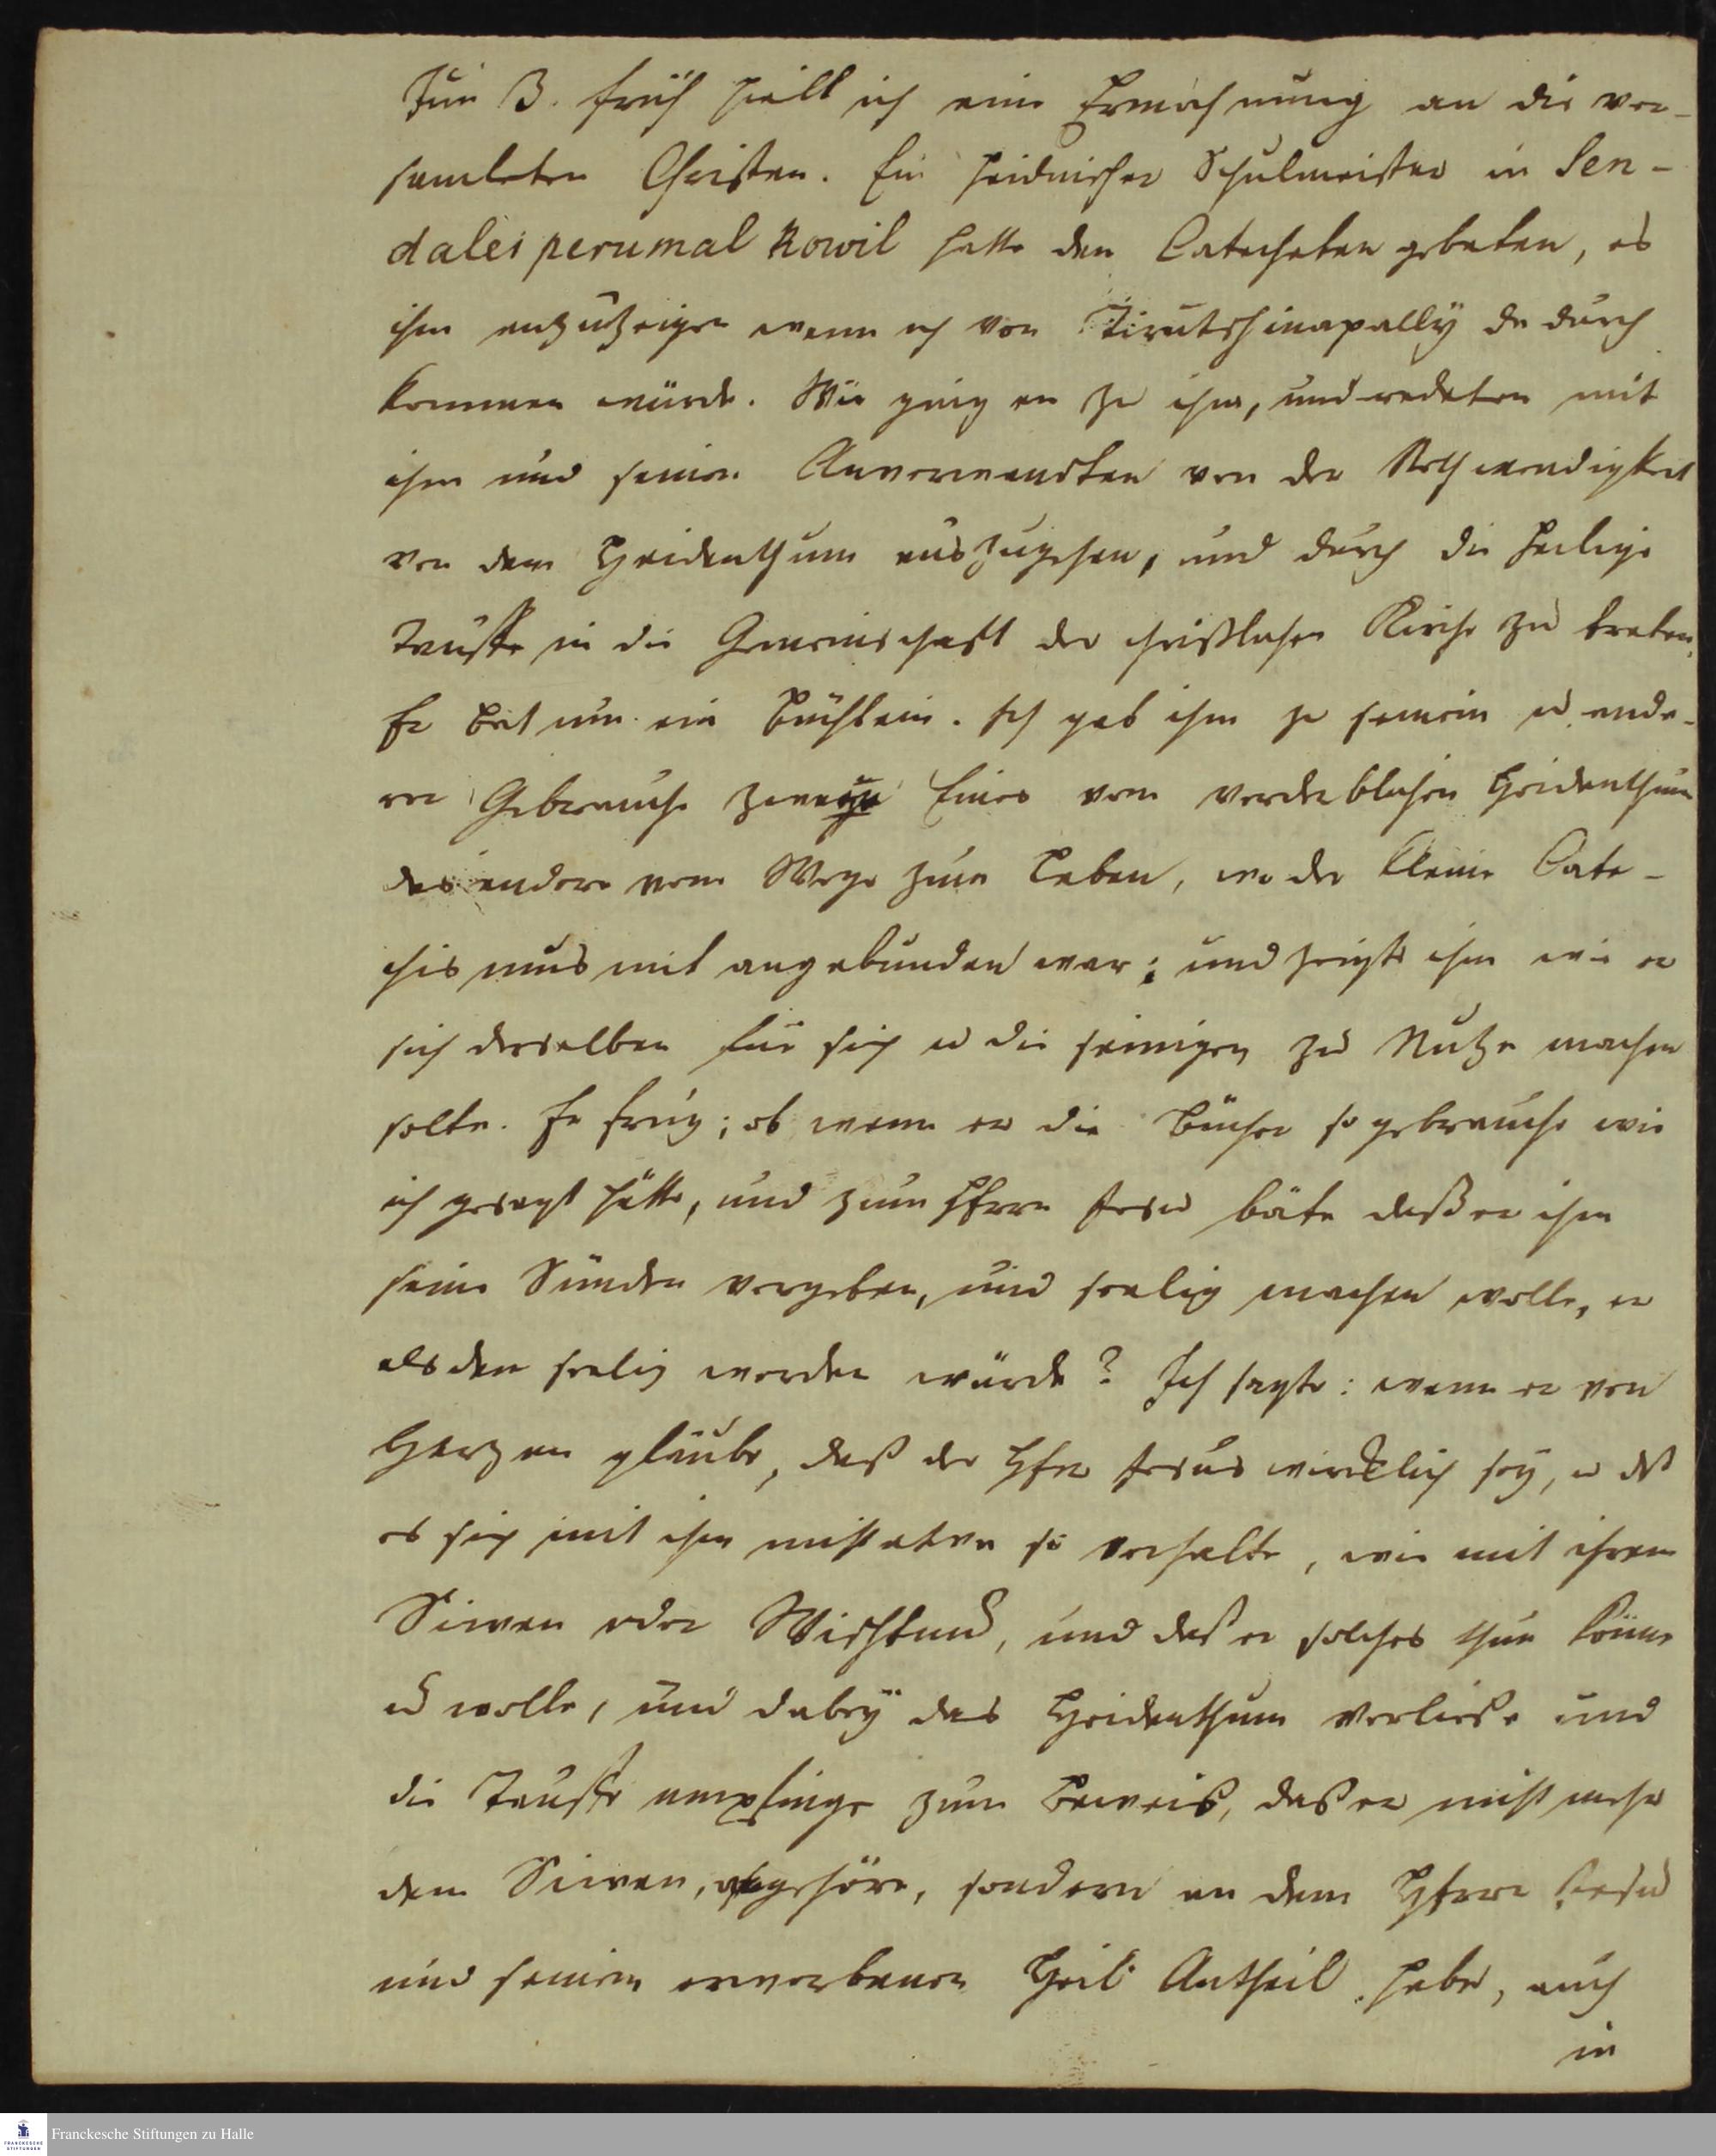 Jun 3. früh hielt ich eine Ermahnung an die ver-
samleten Christen. Ein heidnischer Schulmeister in Sen-
dalei perumal kowil hatte den Catecheten gebeten, es
ihm anzuzeigen wenn ich von Tirutschinapally da durch
kommen würde. Wir gingen zu ihm, und redeten mit
ihm und seinen Anverwandten von der Nothwendigkeit
von dem Heidenthum auszugehen, und durch die heilige
Tauffe in die Gemeinschaft der christlichen Kirche zu treten.
Er bat um ein Büchlein. Ich gab ihm zu seinem u. ande-
rer Gebrauche zwey Eines vom verderblichen Heidenthum
das andere vom Wege zum Leben, wo der kleine Cate-
chismus mit angebunden war; und zeigte ihm wie er
sich derselben für sich u die seinigen zu Nutze machen
solte. Er frug; ob wenn er die Bücher so gebrauche wie
ich gesagt hätte, und zum HErrn Jesu bäte daß er ihm
seine Sünden vergeben, und seelig machen wolle, er
alsden seelig werden würde? Ich sagte: wenn er von
Herzen glaube, daß der HErr Jesus wircklich sey, u dß
es sich mit ihm nicht etwa so verhalte, wie mit ihrem
Siwen oder Wischtnu, und daß er solches thun könne
u wolle, und dabey das Heidenthum verließe und
die Tauffe empfinge zum Beweiß, daß er nicht mehr
dem Siwen, gehöre, sondern an dem HErrn Jesu
und seinem erworbenen Heil Antheil habe, auch
in
Franckesche Stiftungen zu Halle
FRANCKESCHE
STIFTUNGEN